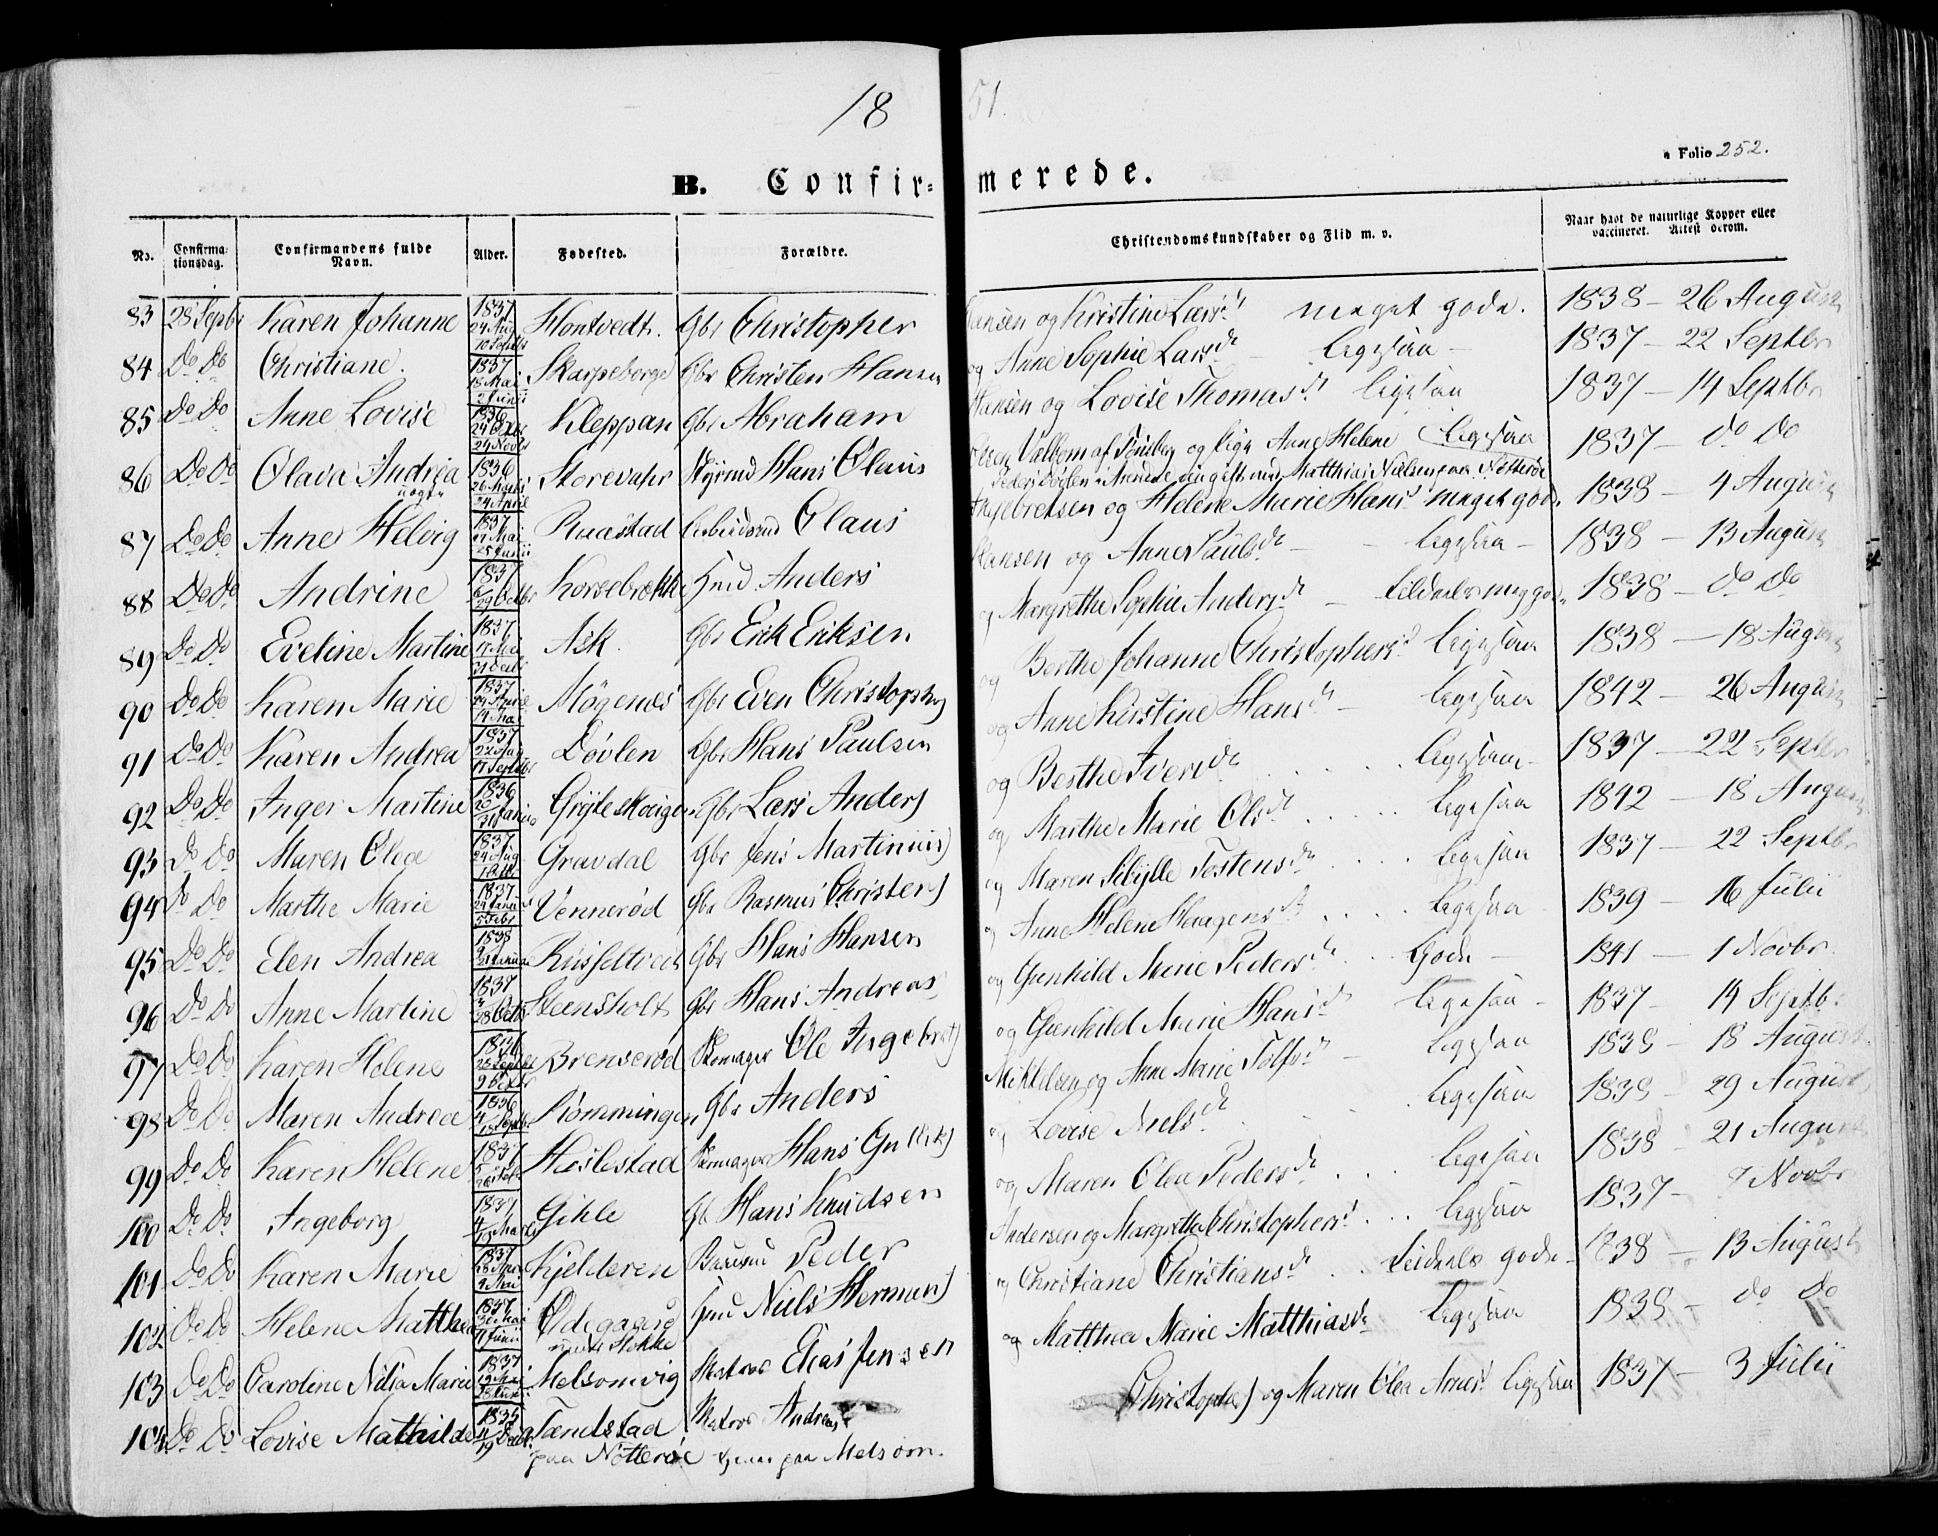 18 51.
Folio 252.
B. Confir- merede.
No. Confirma-tionsdag. Confirmandens fulde Navn. Alder. Fødested. Forældre. Christendomskundskaber og Flid m. v. Naar havt de naturlige Kopper eller vaccineret. Attest derom.
83 28 Septbr Karen Johanne 1837 Hontvedt. Gbr Christopher Hansen og Kristine Larsd meget gode. 1838 - 26 August
84 Do Do Christiane. 1837 18 Mai Skarpeborge Gbr Christen Hansen og Anne Sophie Larsd ligesaa - 1837 - 22 Septbr
85 Do Do Anne Lovise 1836 24 Novbr Kleppan Gbr Abraham Hansen og Lovise Thomasd ligesaa 1837 - 14 Septbr
86 Do Do Olava Andrea 1836 24 April Storevahr Hans Olaus Olsen af og Anne Helene ligesaa 1837 - do do
Peders Døvlen Matthias Nielsen paa Nøtterøe
87 Do Do Anne Helvig 1837 25 Junii Ruastad Olaus Ingebretsen og Helene Marie Hansd meget gode. 1838 - 4 August
88 Do Do Andrine 1837 29 Octbr Korsebrekke Hmd Anders Hansen og Anne Paulsd - ligesaa - 1838 - 13 August
89 Do Do Eveline Martine 1837 Ask. Gbr Erik Eriksen og Margrethe Sophie Andersd - 1838 - do do
90 Do Do Karen Marie 1837 14 Mai Møgenes Gbr Even Christophers og Berthe Johanne Christophersd ligesaa 1838 - 18 August
91 Do Do Karen Andrea 1837 22 Aug 17 Septbr Døvlen Gbr Hans Paulsen og Anne Kirstine Hansd - ligesaa 1842 - 26 August
92 Do Do Inger Martine 1836 Gbr Lars Anders og Berthe Iversd ligesaa - 1837 - 22 Septbr
93 Do Do Maren Olea 1837 24 Aug Gravdal Gbr Jens Martinius og Marthe Marie Olsd ligesaa 1842 - 18 August
94 Do Do Marthe Marie 1837 Vennerød Gbr Rasmus Christens og Maren Sibylle Tostensd ligesaa 1837 - 22 Septbr
95 Do Do Elen Andrea 1838 Gbr Hans Hansen og Anne Helene Haagensd ligesaa 1839 - 16 Julii
96 Do Do Anne Martine 1837 28 Octbr Steensholt Gbr Hans Andreas og Gunhild Marie Pedersd Gode - 1841 - 1 Novbr.
97 Do Do Karen Helene 1836 Brenserød Skomager Ole Ingebret og Gunhild Marie Hansd ligesaa - 1837 - 14 Septbr.
98 Do Do Maren Andrea 1836 Rømmingen Gbr Anders Mikkelsen og Anne Marie Tolfsd - ligesaa 1838 - 18 August
99 Do Do Karen Helene 1837 Haslestad Skomager Hans og Lovise Nielsd ligesaa 1838 - 29 August
100 Do Do Ingeborg 1837 Gihle Gb Hans Knudsen og Maren Olea Pedersd ligesaa 1838 - 21 August
101 Do Do Karen Marie 1837 9 Mai Kjelderen Peder Andersen og Margrethe Christophersd ligesaa 1837 - 7 Novbr
102 Do Do Helene Matthea 1837 11 Junii Ødegaard under Stokke Hmd Niels Hermans og Christiane Christiansd gode 1838 - 13 August
103 Do Do Caroline Nilia Marie 1837 Melsomvig Matros Elias Jensen og Matthea Marie Matthiasd ligesaa 1838 - do do
104 Do Do Lovise Mathilde 1835 19 Decbr. Tandstad paa Nøtterøe Matros Andreas Christophers og Maren Olea Arnesd ligesaa 1837 - 3 Julii
tjener paa Melsom.